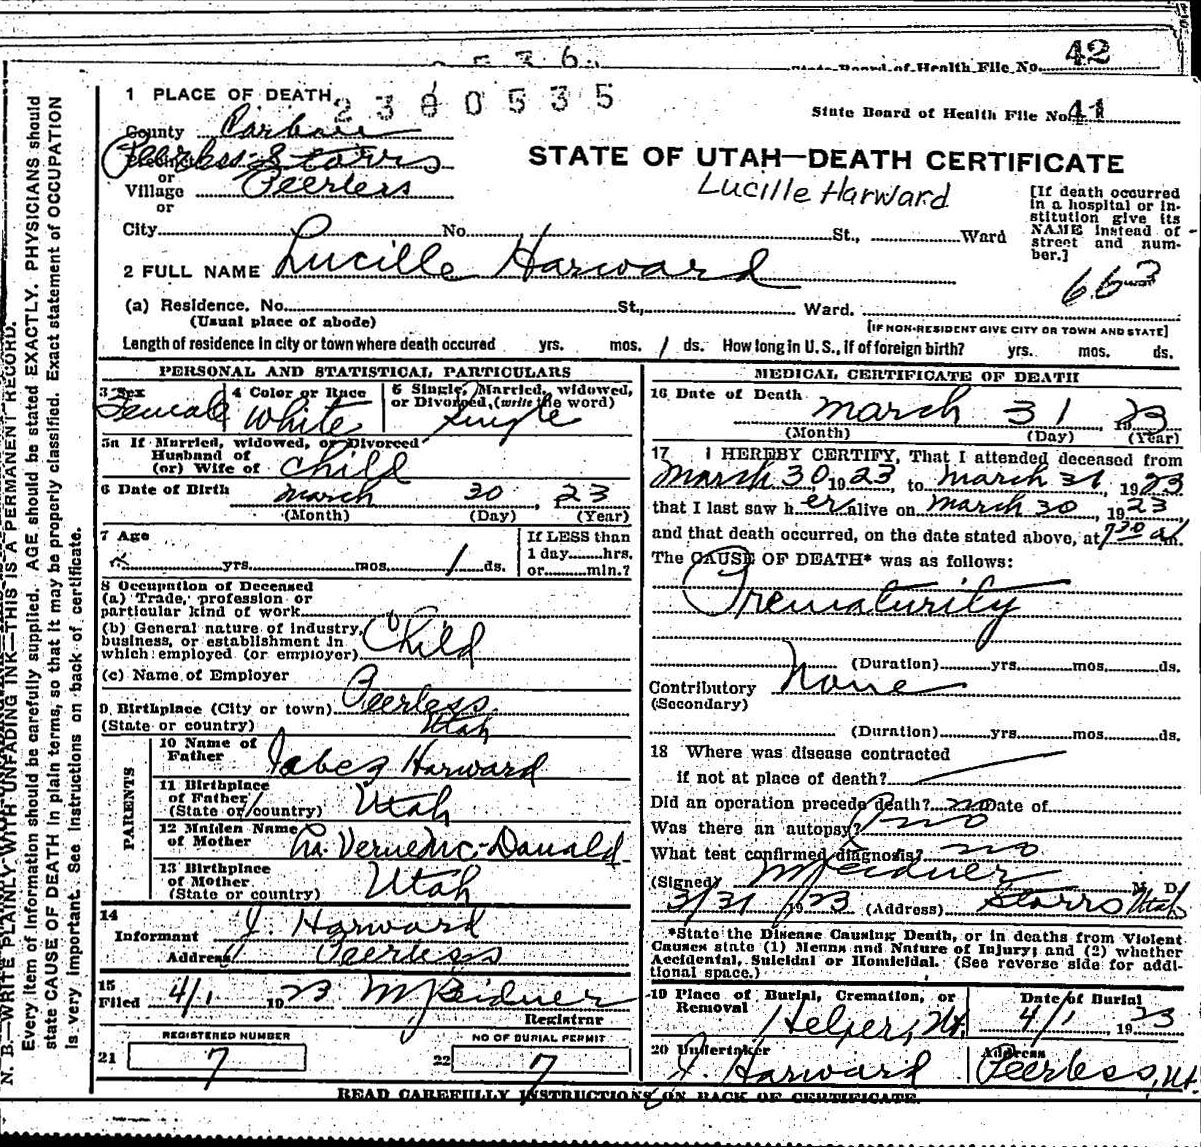 42
State Board of Health File No.
1 PLACE OF DEATH
2380535
State Board of Health File No. 41
County Carbon
Peerless Storrs
or
Village Peerless
or
STATE OF UTAH—DEATH CERTIFICATE
Lucille Harward
[If death occurred in a hospital or institution give its NAME instead of street and number.]
City No. St., Ward
2 FULL NAME Lucille Harward
663
(a) Residence. No. St., Ward.
(Usual place of abode)
[IF NON-RESIDENT GIVE CITY OR TOWN AND STATE]
Length of residence in city or town where death occured yrs. mos. 1 ds. How long in U. S., if of foreign birth? yrs. mos. ds.
PERSONAL AND STATISTICAL PARTICULARS
3 Sex Female
4 Color or Race White
5 Single, Married, widowed, or Divorced, (write the word) Single
5a If Married, widowed, or Divorced
Husband of
(or) Wife of child
6 Date of Birth March 30, 23
(Month) (Day) (Year)
7 Age
yrs. mos. 1 ds.
If LESS than
1 day hrs.
or min.?
8 Occupation of Deceased
(a) Trade, profession or
particular kind of work
(b) General nature of industry,
business, or establishment in
which employed (or employer) Child
(c) Name of Employer
9 Birthplace (City or town) Peerless
(State or country) Utah
PARENTS
10 Name of Father Jabez Harward
11 Birthplace of Father
(State or country) Utah
12 Maiden Name of Mother La Verne Mc-Donald
13 Birthplace of Mother
(State or country) Utah
14
Informant J. Harward
Address Peerless
15
Filed 4/1 1923
Registrar
REGISTERED NUMBER
21 7
NO OF BURIAL PERMIT
22 7
MEDICAL CERTIFICATE OF DEATH
16 Date of Death March 31 1923
(Month) (Day) (Year)
17 I HEREBY CERTIFY, That I attended deceased from
March 30, 1923, to March 31, 1923
that I last saw her alive on March 30, 1923
and that death occurred, on the date stated above, at 730 a.m.
The CAUSE OF DEATH* was as follows:
Prematurity
(Duration) yrs. mos. ds.
Contributory None
(Secondary)
(Duration) yrs. mos. ds.
18 Where was disease contracted
if not at place of death?
Did an operation precede death? no Date of
Was there an autopsy? no
What test confirmed diagnosis? no
(Signed) M. D.
3/31 1923 (Address) Storrs Utah
*State the Disease Causing Death, or in deaths from Violent
Causes state (1) Means and Nature of Injury; and (2) whether
Accidental, Suicidal or Homicidal. (See reverse side for additional space.)
19 Place of Burial, Cremation, or Removal Helper, Ut.
Date of Burial 4/1, 1923
20 Undertaker J. Harward
Address Peerless, Ut.
READ CAREFULLY INSTRUCTIONS ON BACK OF CERTIFICATE.
N. B.—WRITE PLAINLY WITH UNFADING INK—THIS IS A PERMANENT RECORD.
Every item of information should be carefully supplied. AGE should be stated EXACTLY. PHYSICIANS should
state CAUSE OF DEATH in plain terms, so that it may be properly classified. Exact statement of OCCUPATION
is very important. See Instructions on back of certificate.